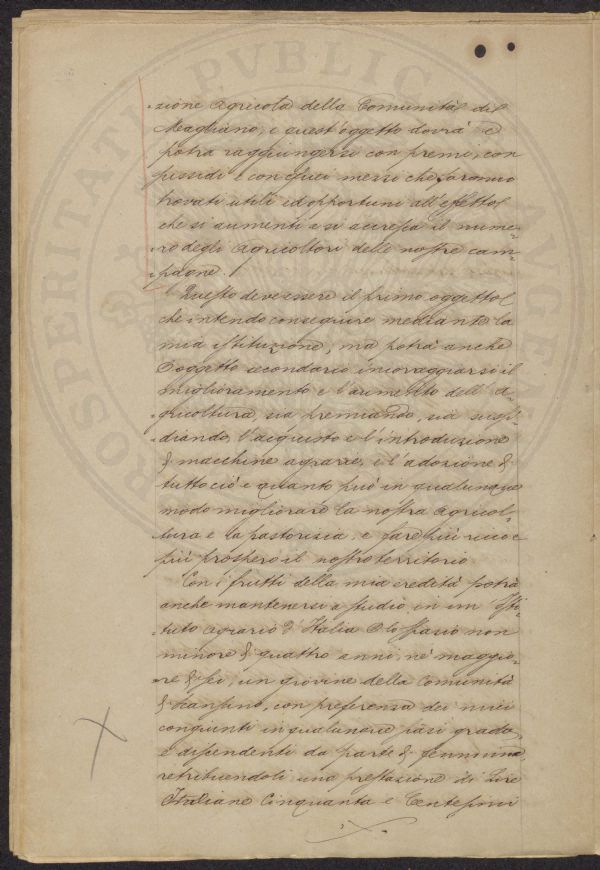 PROSPERITATI PVBLICAE AVGENDAE
-zione agricola della Comunità di
Magliano, e quest'oggetto dovrà e
potrà raggiungersi con premi, con
sussidi e con quei mezzi che saranno
trovati utili ed opportuni all'effetto
che si aumenti e si accresca il nume-
-ro degli agricoltori delle nostre cam-
-pagne.
Questo deve essere il primo oggetto
che intendo conseguire mediante la
mia istituzione, ma potrà anche
oggetto secondario incoraggiarsi il
miglioramento e l'aumento dell'a-
-gricoltura, sia premiando, sia sussi-
-diando, l'acquisto e l'introduzione
di macchine agrarie, e l'adozione di
tutto ciò e quanto può in qualunque
modo migliorare la nostra agricol-
-tura e la pastorizia, e fare più ricco e
più prospero il nostro territorio
Con i frutti della mia eredità potrà
anche mantenersi a studio in un Isti-
-tuto agrario d'Italia lo spazio non
minore di quattro anni, nè maggio-
-re di sei, un giovine della Comunità
di Scansano, con preferenza dei miei
congiunti in qualunque siasi grado,
e discendenti da parte di femmina
retribuendoli una prestazione di Lire
Italiane Cinquanta e Centesimi